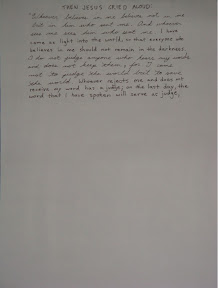 THEN JESUS CRIED ALOUD:
"Whoever believes in me believes not in me
but in him who sent me. And whoever
sees me sees him who sent me. I have
come as light into the world, so that everyone who
believes in me should not remain in the darkness.
I do not judge anyone who hears my words
and does not keep them, for I came
not to judge the world but to save
the world. Whoever rejects me and does not
receive my word has a judge; on the last day, the
word that I have spoken will serve as judge,